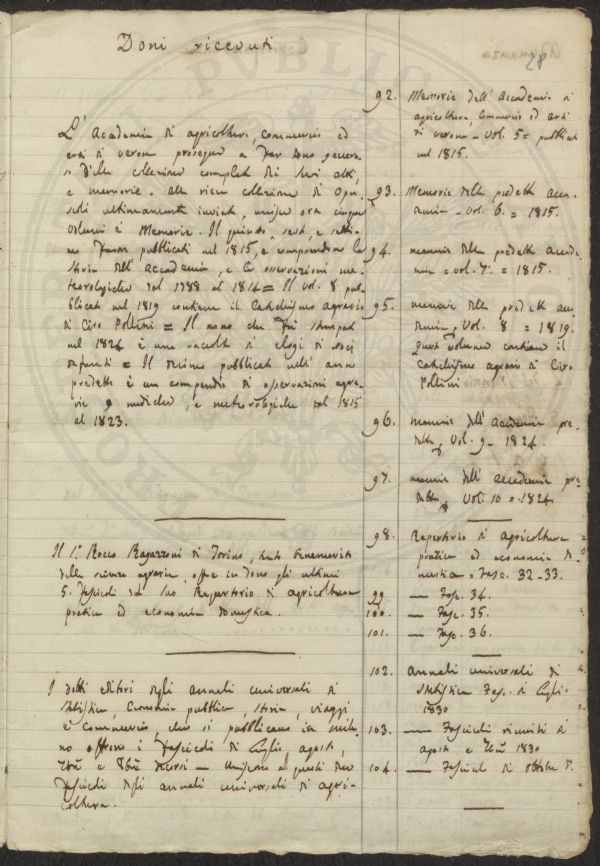 Doni ricevuti
28
L'Academia di agricoltura, commercio ed
arti di Verona prosegue a far dono generoso
della collezione completa dei suoi atti,
e memorie. Alla ricca collezione di opuscoli
ultimamente inviata, unisce ora cinque
volumi di Memorie. Il quinto, sesto, e settimo
furon pubblicati nel 1815, e comprendono la
storia dell'Accademia, e le osservazioni meteorologiche
dal 1788 al 1814 = Il vol. 8 pubblicato
nel 1819 contiene il Catechismo agrario
di Ciro Pollini = Il nono che fu stampato
nel 1824 è una raccolta di elogi di soci
defunti = Il decimo pubblicato nell'anno
predetto è un compendio di osservazioni agrarie,
mediche, e meteorologiche dal 1815
al 1823.
Il Sr. Rocco Ragazzoni di Torino, tanto benemerito
della scienza agraria, offre in dono gli ultimi
5. fascicoli del suo Repertorio di agricoltura
pratica ed economia domestica.
I dotti editori degli annali universali di
statistica, economia pubblica, storia, viaggi
e commercio, che si pubblicano in Milano
offrono i fascicoli di Luglio agosto,
7bre e 8bre decorsi — Uniscono a questi due
fascicoli degli annali universali di agricoltura.
92. Memorie dell'Accademia di
agricoltura, commercio ed arti
di Verona - Vol. 5 = pubblicato
nel 1815.
93. Memorie della predetta Accademia
- Vol. 6. = 1815.
94. memorie della predetta Accademia
= vol. 7. = 1815.
95. memorie della predetta accademia,
Vol. 8 = 1819.
Questo volume contiene il
catechismo agrario di Ciro
Pollini
96. memorie dell'Accademia predetta,
Vol. 9 - 1824.
97. memorie dell'accademia predetta,
Vol. 10 = 1824.
98. Repertorio di agricoltura
pratica ed economia domestica
= Fasc. 32-33.
99 — Fasc. 34.
100. — Fasc. 35.
101. — Fasc. 36.
102. annali universali di
statistica Fasc. di Luglio
1830
103. — Fascicoli riuniti di
agosto e 7bre 1830
104. — Fascicolo di ottobre